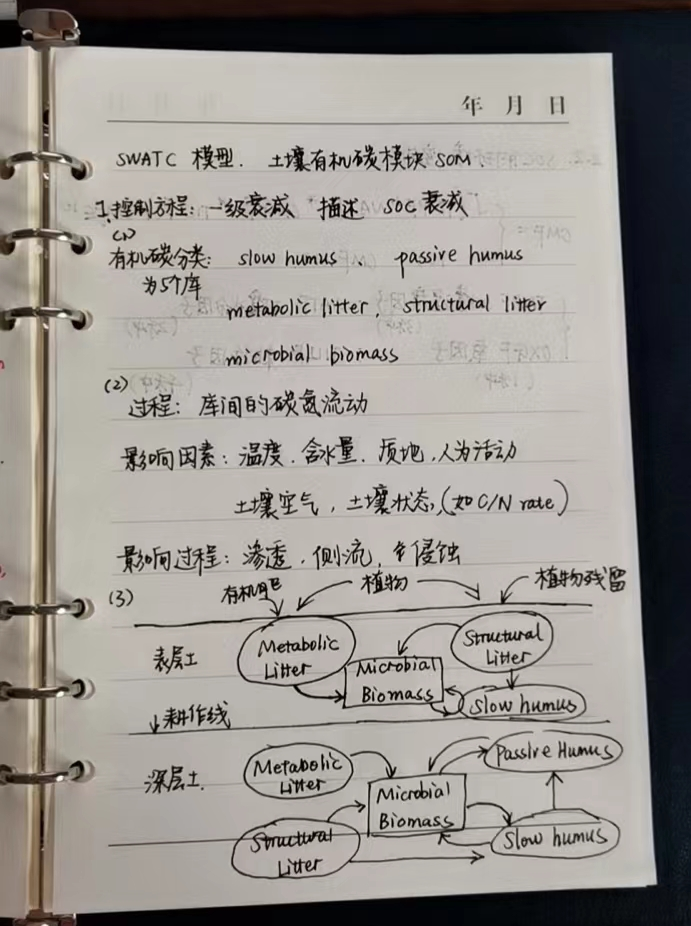 年 月 日
SWATC 模型. 土壤有机碳模块 SOM.
1.控制方程: 一级衰减 描述 SOC 衰减
(1)
有机碳分类: slow humus 、 passive humus
为5个库
metabolic litter, structural litter
microbial biomass
(2)
过程: 库间的碳氮流动
影响因素: 温度. 含水量. 质地, 人为活动
土壤空气, 土壤状态, (如 C/N rate)
影响过程: 渗透. 侧流, 侵蚀
(3)
有机肥 植物 植物残留
表层土
Metabolic Litter
Microbial Biomass
Structural Litter
Slow humus
↓耕作线
深层土.
Metabolic Litter
Microbial Biomass
Passive Humus
Structural Litter
Slow humus